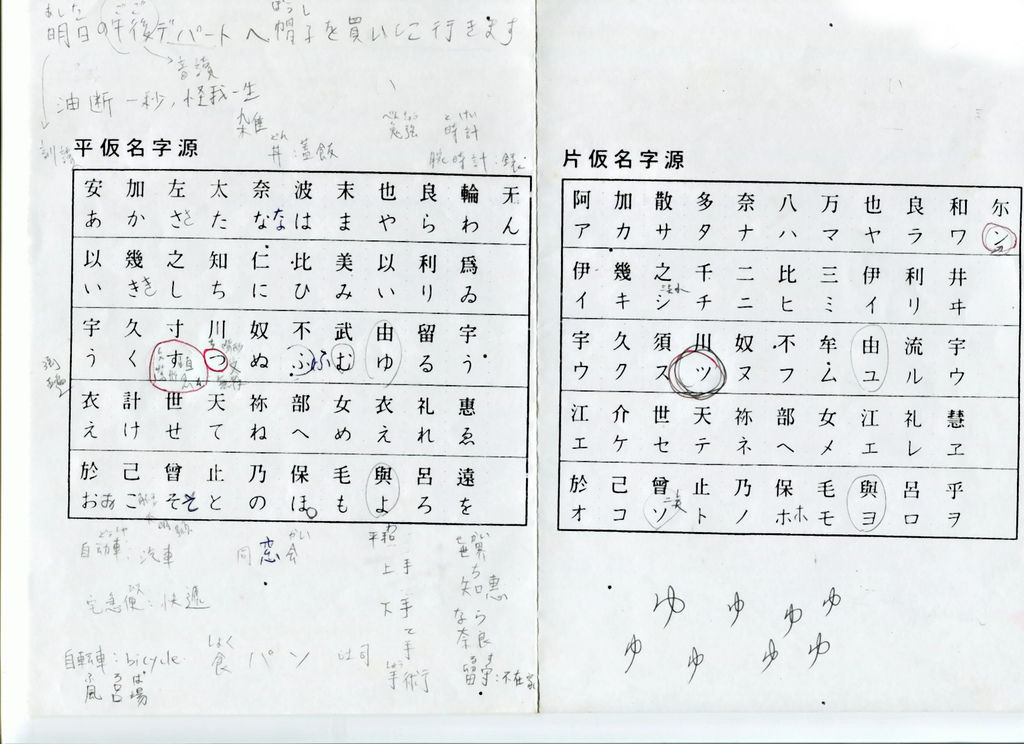 あした ごご ぼうし
明日の午後デパートへ帽子を買いに行きます
音讀
油断一秒,怪我一生
雑
べんきょう とけい
勉強 時計
どん
丼:蓋飯
腕時計:錶
訓讀
平仮名字源
安 加 左 太 奈 波 末 也 良 輪 无
あ か さ さ た な な は ま や ら わ ん
以 幾 之 知 仁 比 美 以 利 爲
い き き し ち に ひ み い り ゐ
宇 久 寸 川 奴 不 武 由 留 宇
う く す つ ぬ ふ ふ む ゆ る う
衣 計 世 天 祢 部 女 衣 礼 惠
え け せ て ね へ め え れ ゑ
於 己 曽 止 乃 保 毛 與 呂 遠
お お こ そ そ と の ほ も よ ろ を
自動車:汽車
かい
同窓会
わ
平和
せかい
世界
上手
ち
知恵
宅急便:快遞
下手
なら
奈良
自転車:bicycle
しょく
食 パン 壽司
て
手
しゅ
手術行
るす
留守:不在家
ふろば
風呂場
片仮名字源
阿 加 散 多 奈 八 万 也 良 和 尓
ア カ サ タ ナ ハ マ ヤ ラ ワ ン
伊 幾 之 千 二 比 三 伊 利 井
イ キ シ チ ニ ヒ ミ イ リ ヰ
宇 久 須 川 奴 不 牟 由 流 宇
ウ ク ス ツ ヌ フ ム ユ ル ウ
江 介 世 天 祢 部 女 江 礼 慧
エ ケ セ テ ネ ヘ メ エ レ ヱ
於 己 曽 止 乃 保 毛 與 呂 乎
オ コ ソ ト ノ ホ ホ モ ヨ ロ ヲ
ゆ ゆ ゆ ゆ
ゆ ゆ ゆ ゆ